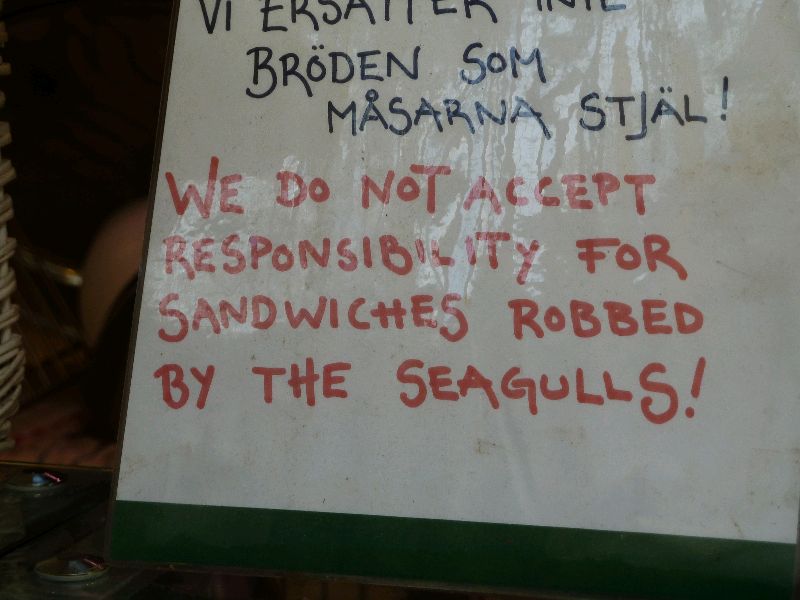 VI ERSÄTTER INTE
BRÖDEN SOM
MÅSARNA STJÄL!
WE DO NOT ACCEPT
RESPONSIBILITY FOR
SANDWICHES ROBBED
BY THE SEAGULLS!